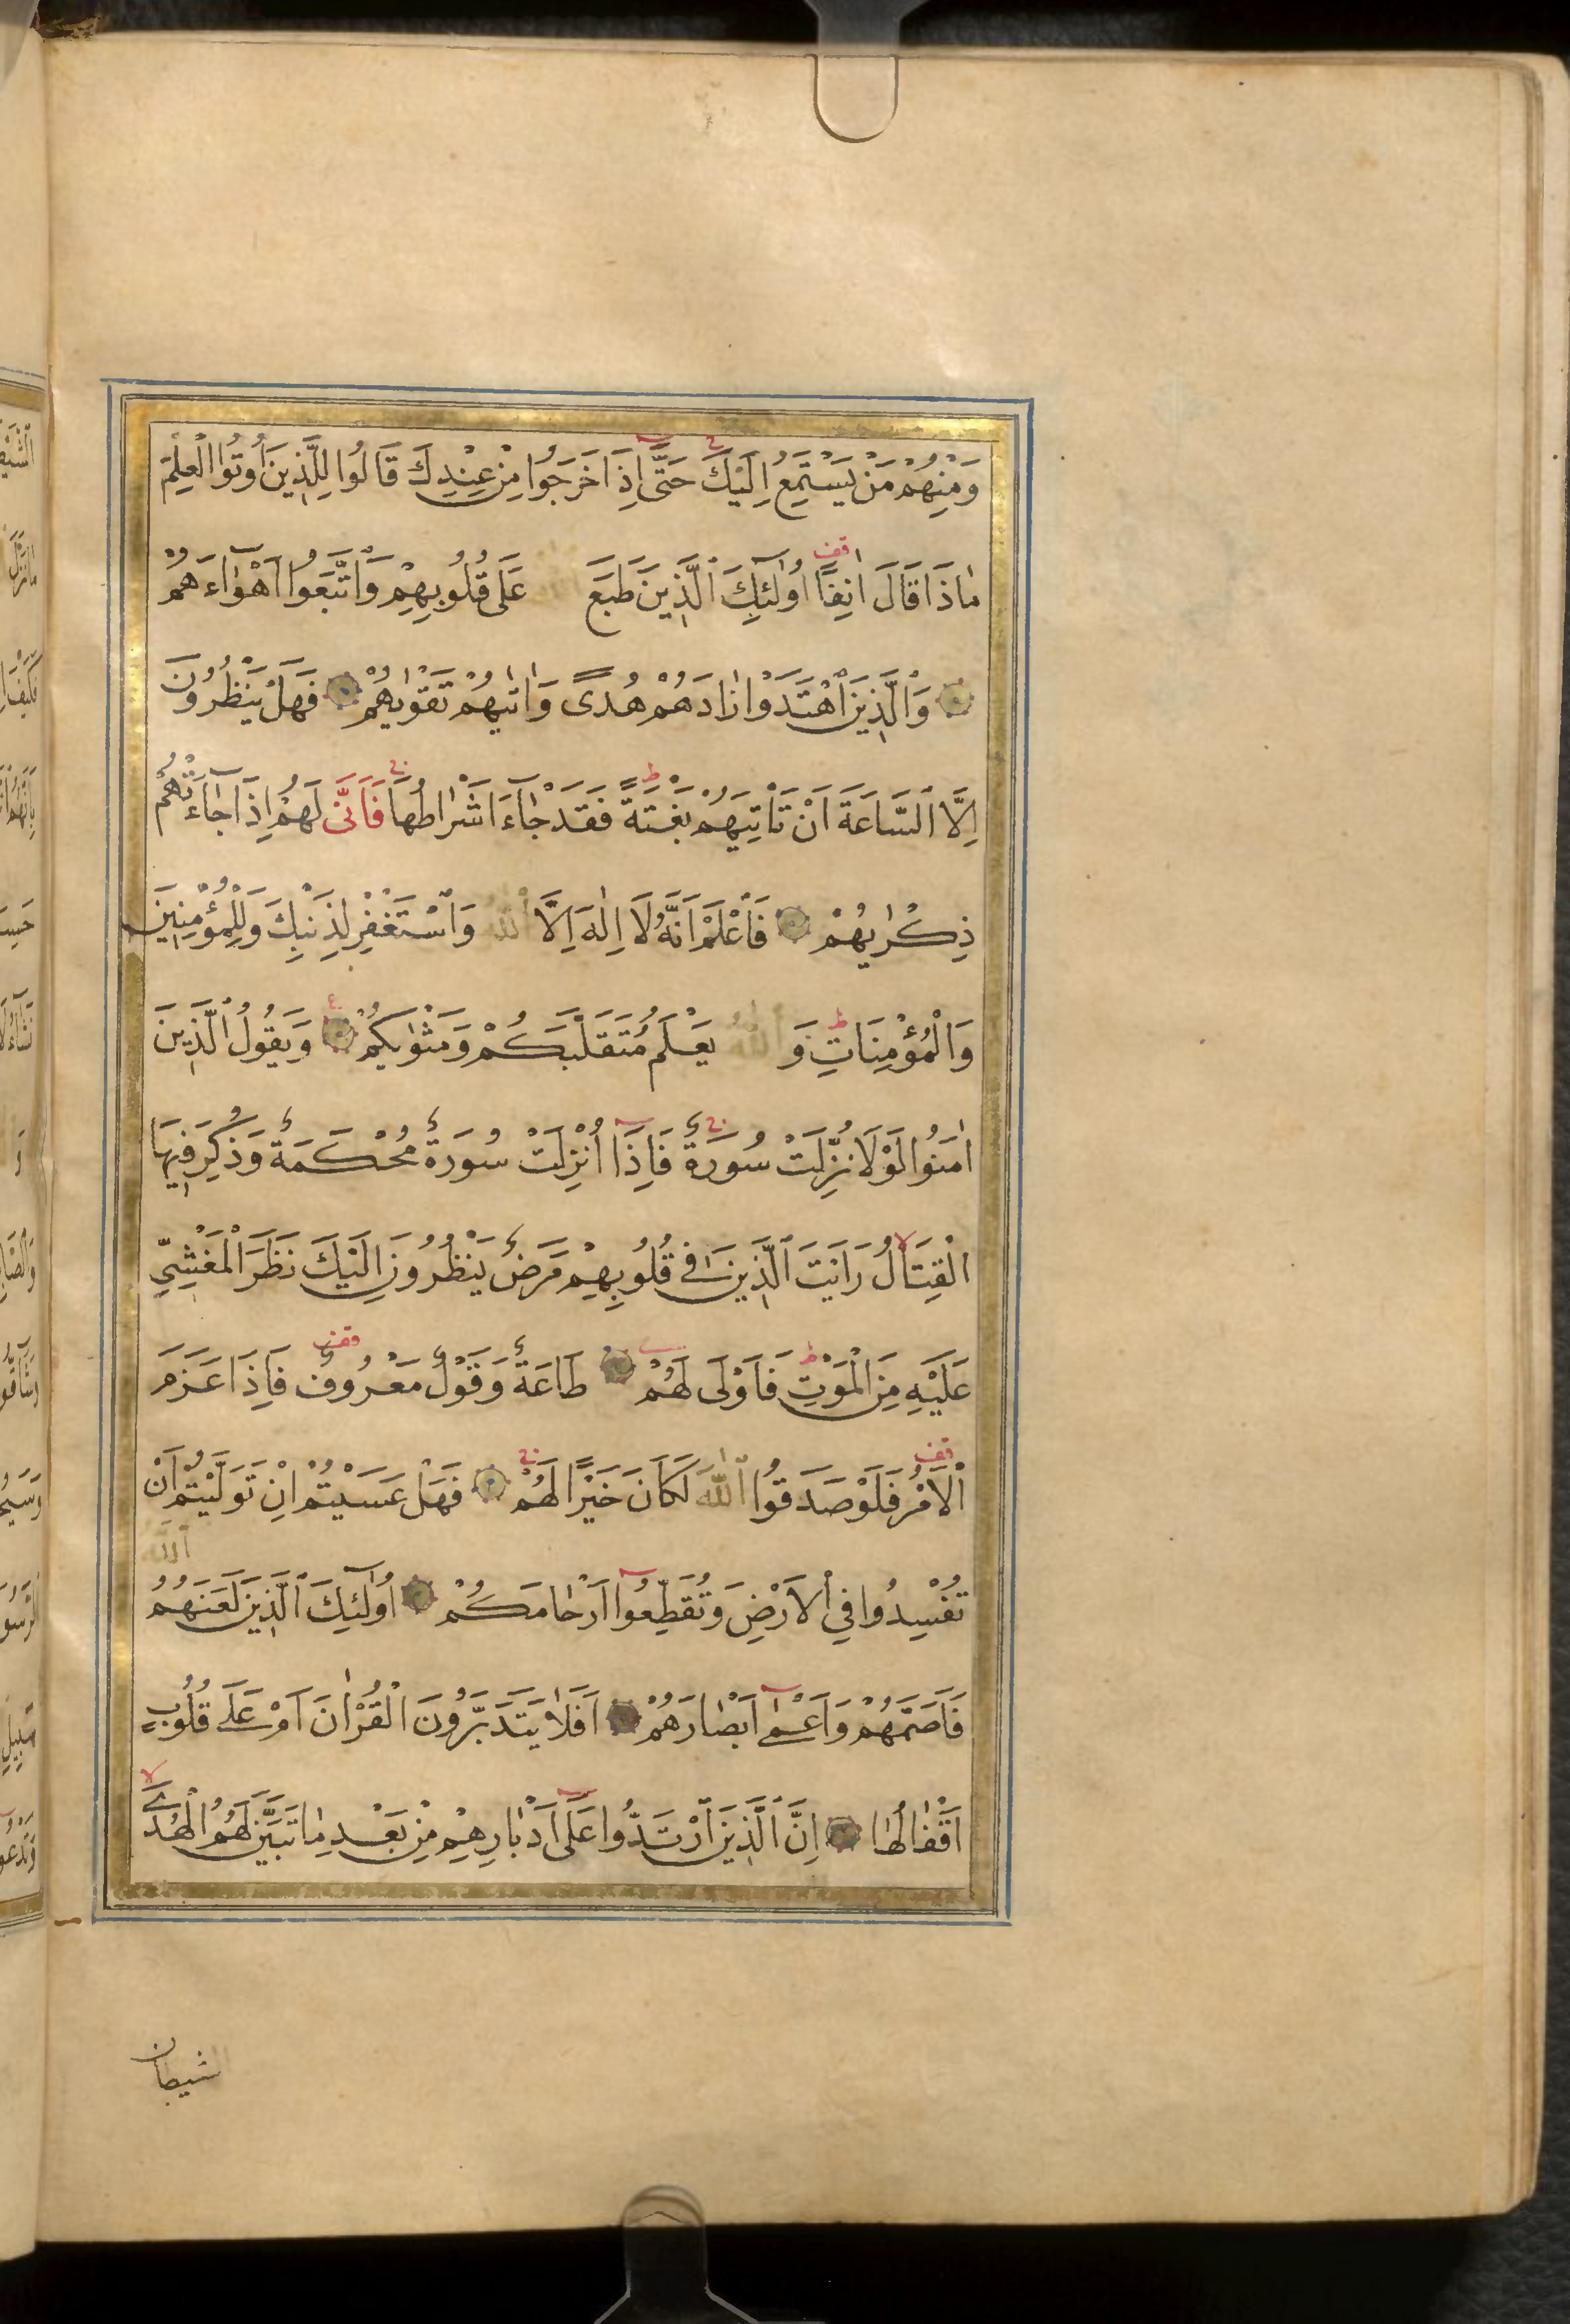 وَمِنْهُمْ مَنْ يَسْتَمِعُ اِلَيْكَ حَتَّى اِذَا خَرَجُوا مِنْ عِنْدِكَ قَالُوا لِلَّذِينَ اُوتُوا الْعِلْمَ
مَاذَا قَالَ اٰنِفًا اُولٰٓئِكَ الَّذِينَ طَبَعَ اللّٰهُ عَلَى قُلُوبِهِمْ وَاتَّبَعُوا اَهْوَاءَهُمْ
وَالَّذِينَ اهْتَدَوْا زَادَهُمْ هُدًى وَاٰتٰيهُمْ تَقْوٰيهُمْ فَهَلْ يَنْظُرُونَ
اِلَّا السَّاعَةَ اَنْ تَأْتِيَهُمْ بَغْتَةً فَقَدْ جَاءَ اَشْرَاطُهَا فَاَنَّى لَهُمْ اِذَا جَاءَتْهُمْ
ذِكْرٰيهُمْ فَاعْلَمْ اَنَّهُ لَا اِلٰهَ اِلَّا اللّٰهُ وَاسْتَغْفِرْ لِذَنْبِكَ وَلِلْمُؤْمِنِينَ
وَالْمُؤْمِنَاتِ وَ اللّٰهُ يَعْلَمُ مُتَقَلَّبَكُمْ وَمَثْوٰيكُمْ وَيَقُولُ الَّذِينَ
اٰمَنُوا لَوْلَا نُزِّلَتْ سُورَةٌ فَاِذَا اُنْزِلَتْ سُورَةٌ مُحْكَمَةٌ وَذُكِرَ فِيهَا
الْقِتَالُ رَاَيْتَ الَّذِينَ فِي قُلُوبِهِمْ مَرَضٌ يَنْظُرُونَ اِلَيْكَ نَظَرَ الْمَغْشِيِّ
عَلَيْهِ مِنَ الْمَوْتِ فَاَوْلَى لَهُمْ طَاعَةٌ وَقَوْلٌ مَعْرُوفٌ فَاِذَا عَزَمَ
الْاَمْرُ فَلَوْ صَدَقُوا اللّٰهَ لَكَانَ خَيْرًا لَهُمْ فَهَلْ عَسَيْتُمْ اِنْ تَوَلَّيْتُمْ اَنْ
تُفْسِدُوا فِي الْاَرْضِ وَتُقَطِّعُوا اَرْحَامَكُمْ اُولٰٓئِكَ الَّذِينَ لَعَنَهُمُ اللّٰهُ
فَاَصَمَّهُمْ وَاَعْمٰى اَبْصَارَهُمْ اَفَلَا يَتَدَبَّرُونَ الْقُرْاٰنَ اَمْ عَلَى قُلُوبٍ
اَقْفَالُهَا اِنَّ الَّذِينَ ارْتَدُّوا عَلَى اَدْبَارِهِمْ مِنْ بَعْدِ مَا تَبَيَّنَ لَهُمُ الْهُدَى
الشيطان